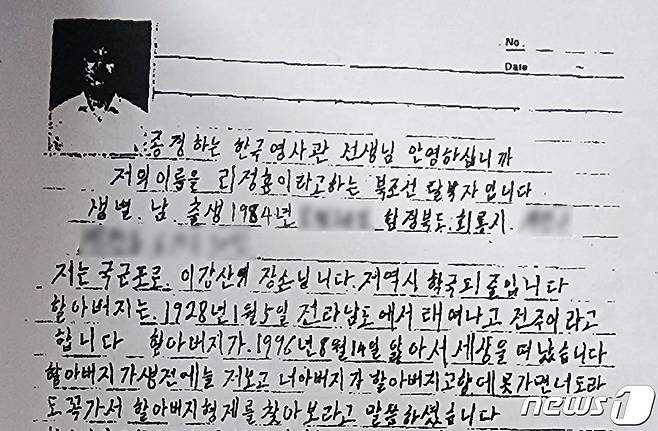 No.
Date ~
종경하는 한국영사관 선생님 안영하십니까
저의이름을 리정효이라고하는 북조선 탈북자입니다
생별. 남. 출생 1984년 함경북도. 회룡시.
저는 국군포로. 이강산의 장손님니다. 저역시 한국되줄입니다
할아버지는. 1928년1월5일 전라남도에서 태여나고 전주이라고
합니다 할아버지가. 1996년8월14일 앓아서 세상을 떠났습니다
할아버지가생전에늘 저보고 너아버지가 할아버지고향에못가면너도라
도 꼭가서 할아버지형제를 찾아보라고 말씀하셨습니다
news1